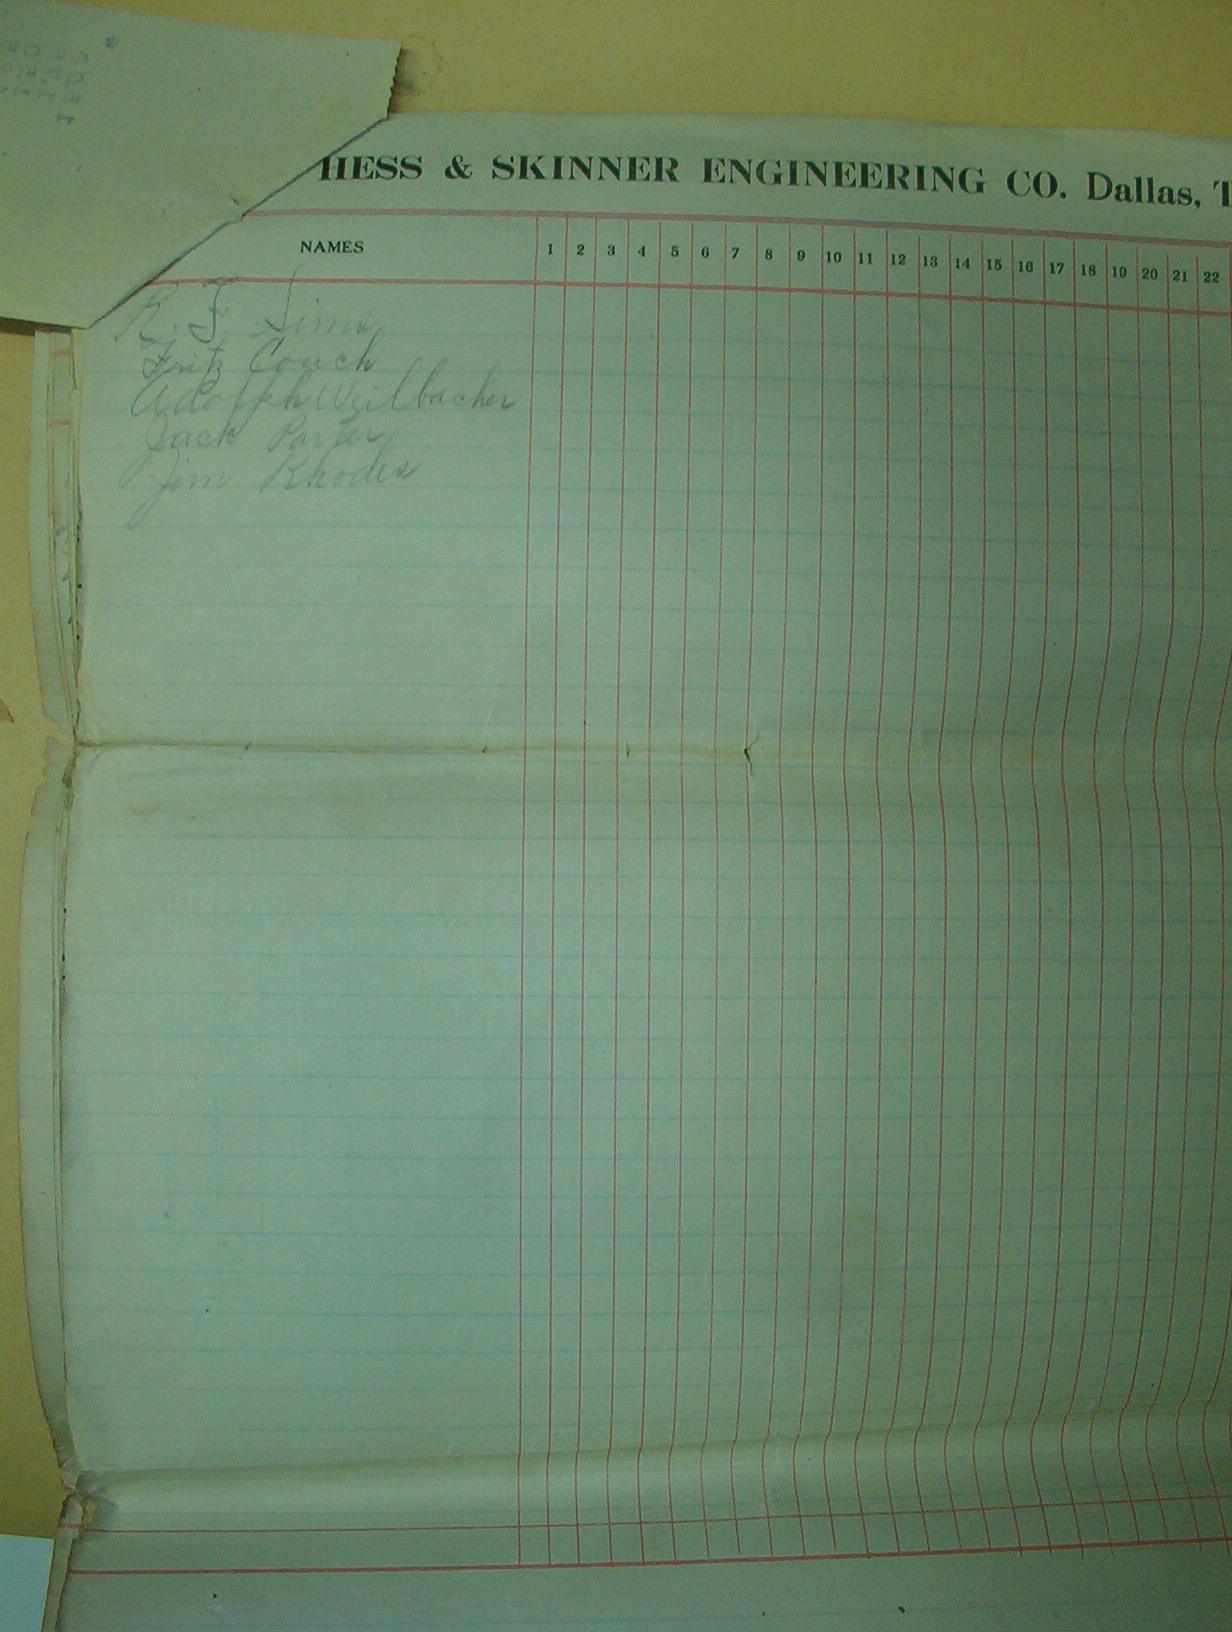 HESS & SKINNER ENGINEERING CO. Dallas, T
NAMES 1 2 3 4 5 6 7 8 9 10 11 12 13 14 15 16 17 18 19 20 21 22
R. F. Sims
Fritz Couch
Adolph Weilbacher
Jack Porter
Jim Rhodes